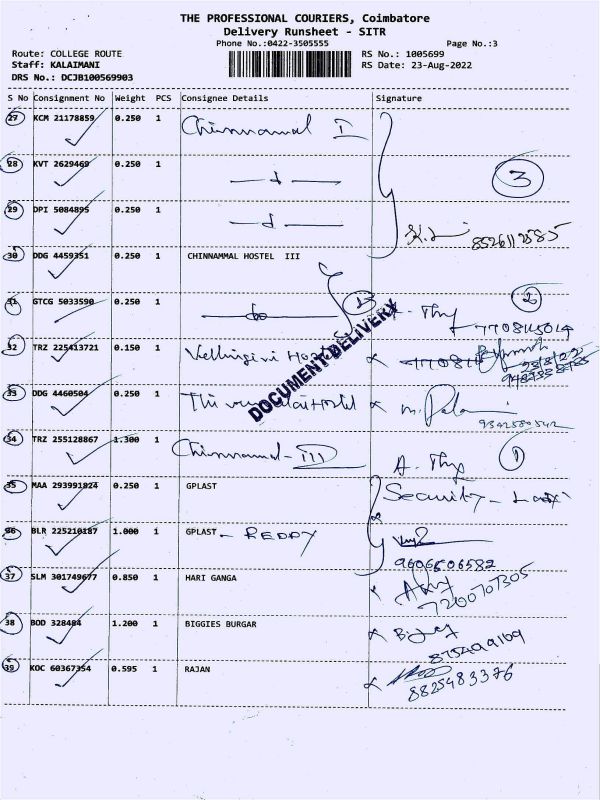 THE PROFESSIONAL COURIERS, Coimbatore
Delivery Runsheet - SITR
Phone No.:0422-3505555
Page No.:3
Route: COLLEGE ROUTE
RS No.: 1005699
Staff: KALAIMANI
RS Date: 23-Aug-2022
DRS No.: DCJB100569903
S No Consignment No Weight PCS Consignee Details Signature
27 KCM 21178859 0.250 1 Chinnamal I
28 KVT 2629469 0.250 1
3
29 DPI 5084895 0.250 1
8526112585
30 DDG 4459351 0.250 1 CHINNAMMAL HOSTEL III
31 GTCG 5033590 0.250 1
2
7708115014
DOCUMENT DELIVERY
32 TRZ 225413721 0.150 1
33 DDG 4460504 0.250 1
9342580542
34 TRZ 255128867 1.300 1 Chinnamal - III
A. Thy
1
35 MAA 293991824 0.250 1 GPLAST
Security -
36 BLR 225210187 1.000 1 GPLAST - REDDY
9606606582
37 SLM 301749677 0.850 1 HARI GANGA
7200707305
38 BOD 328484 1.200 1 BIGGIES BURGAR
39 KOC 60367354 0.595 1 RAJAN
8825483376